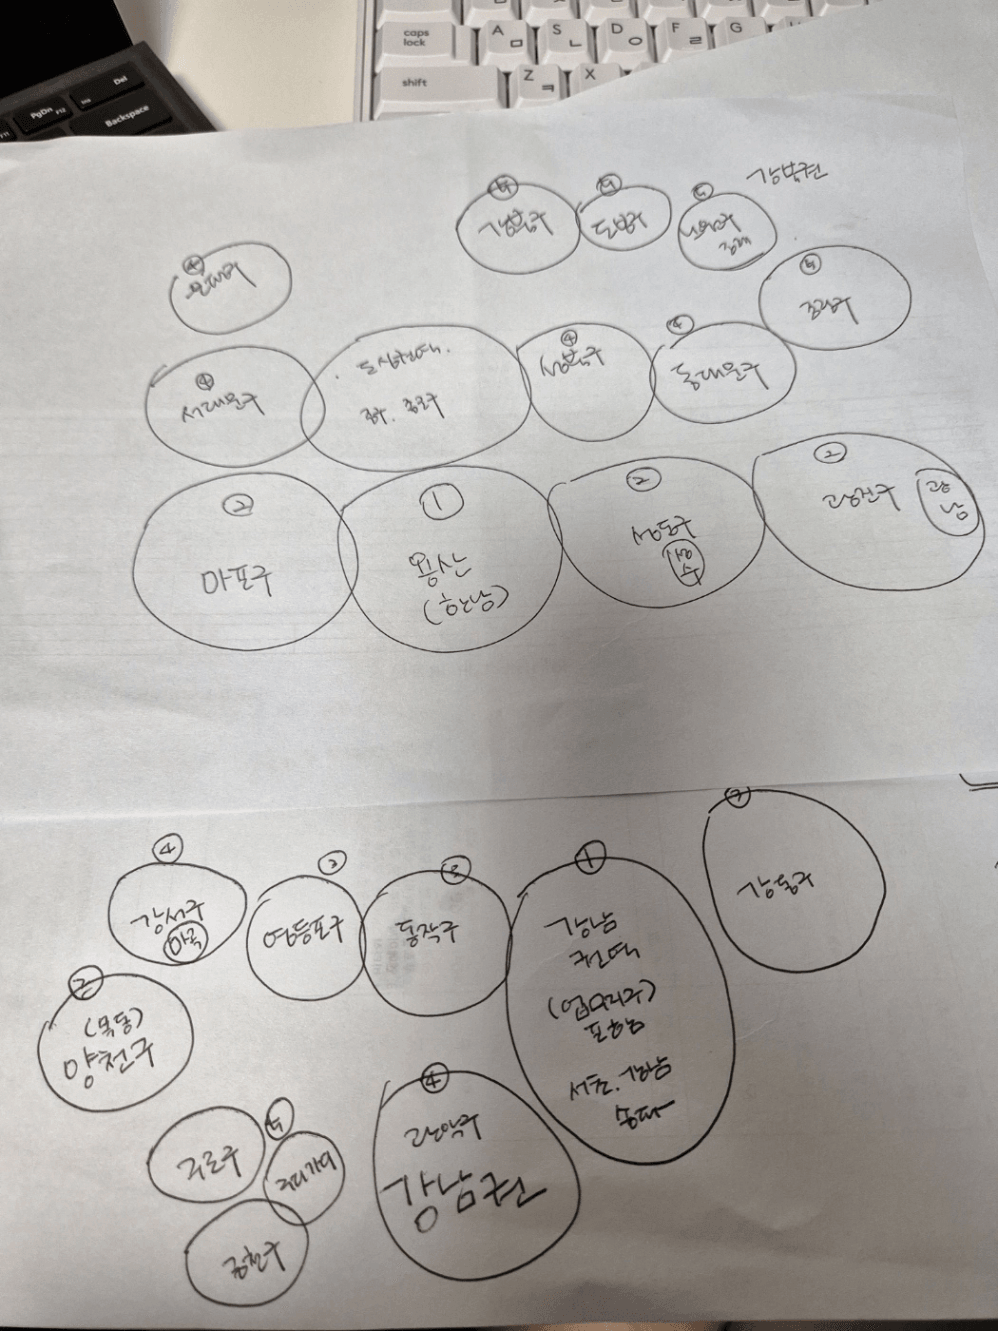 Del
PgDn
F12
F11
Ins
Backspace
caps
lock
A ㅁ
S ㄴ
D ㅇ
F ㄹ
G
shift
Z ㅋ
X
강북권
⑤
강북구
⑤
도봉구
⑤
노원구
④
은평구
⑤
중랑구
④
서대문구
도심권역
중구. 종로구
④
성북구
④
동대문구
②
마포구
①
용산
(한남)
②
성동구
성
수
②
광진구
광
남
④
강서구
마곡
②
영등포구
③
동작구
①
강남
권역
(업무지구)
포함됨
서초. 강남
송파
강동구
②
(목동)
양천구
구로구
⑤
구디가디
금천구
④
관악구
강남권